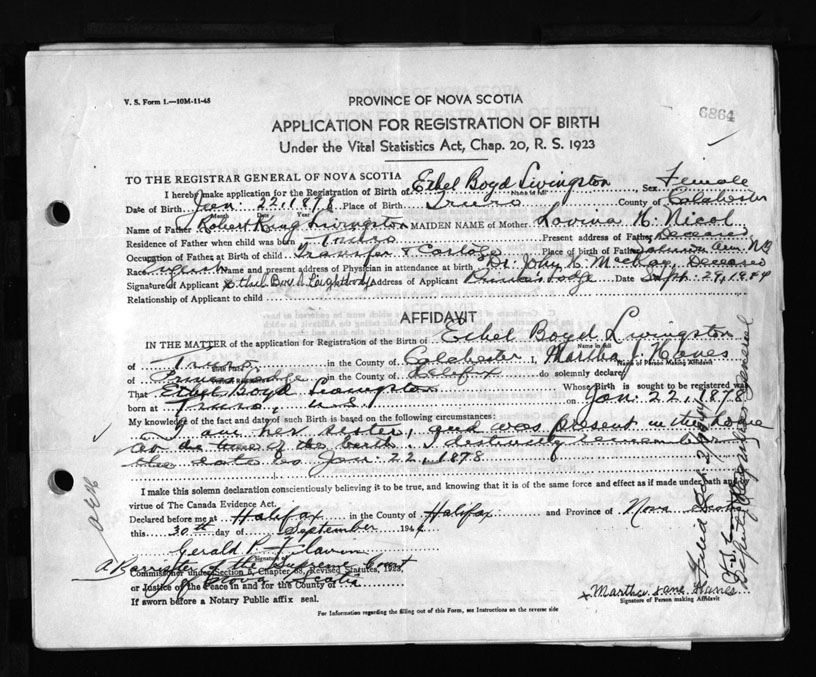 V. S. Form 1.—10M-11-48
PROVINCE OF NOVA SCOTIA
6864
APPLICATION FOR REGISTRATION OF BIRTH
Under the Vital Statistics Act, Chap. 20, R. S. 1923
TO THE REGISTRAR GENERAL OF NOVA SCOTIA
I hereby make application for the Registration of Birth of Ethel Boyd Livingston, Sex Female
Name in full
Date of Birth Jan: 22, 1878 Place of Birth Truro County of Colchester
Month Date Year
Name of Father Robert King Livingston MAIDEN NAME of Mother Lavina H. Nicol
Residence of Father when child was born Truro Present address of Father Deceased
Occupation of Father at Birth of child Transfer & Cartage Place of birth of Father N.B.
Race English Name and present address of Physician in attendance at birth Dr. John H. MacKay, Deceased
Signature of Applicant Ethel Boyd Address of Applicant Date Sept. 29, 1944
Relationship of Applicant to child
AFFIDAVIT
IN THE MATTER of the application for Registration of the Birth of Ethel Boyd Livingston
Name in full
of Truro in the County of Colchester I, Martha J. Hanes
Name of Person Making Affidavit
of in the County of Halifax do solemnly declare
That Ethel Boyd Livingston Whose Birth is sought to be registered was
born at Truro, N.S. on Jan: 22, 1878
My knowledge of the fact and date of such Birth is based on the following circumstances:
I am her sister, and was present in the home
at the time of the birth. I distinctly remember
the date as Jan: 22, 1878
I make this solemn declaration conscientiously believing it to be true, and knowing that it is of the same force and effect as if made under oath and by
virtue of The Canada Evidence Act.
Declared before me at Halifax in the County of Halifax and Province of Nova Scotia
this 30th day of September 1944
Gerald P. Flavin
Signature of
A Barrister of the Supreme Court
of Nova Scotia
Commissioner under Section 6, Chapter 38, Revised Statutes, 1923,
or Justice of the Peace in and for the County of
If sworn before a Notary Public affix seal.
x Martha Jane Hanes
Signature of Person making Affidavit
For Information regarding the filling out of this Form, see Instructions on the reverse side
Filed Oct.
Deputy Registrar General